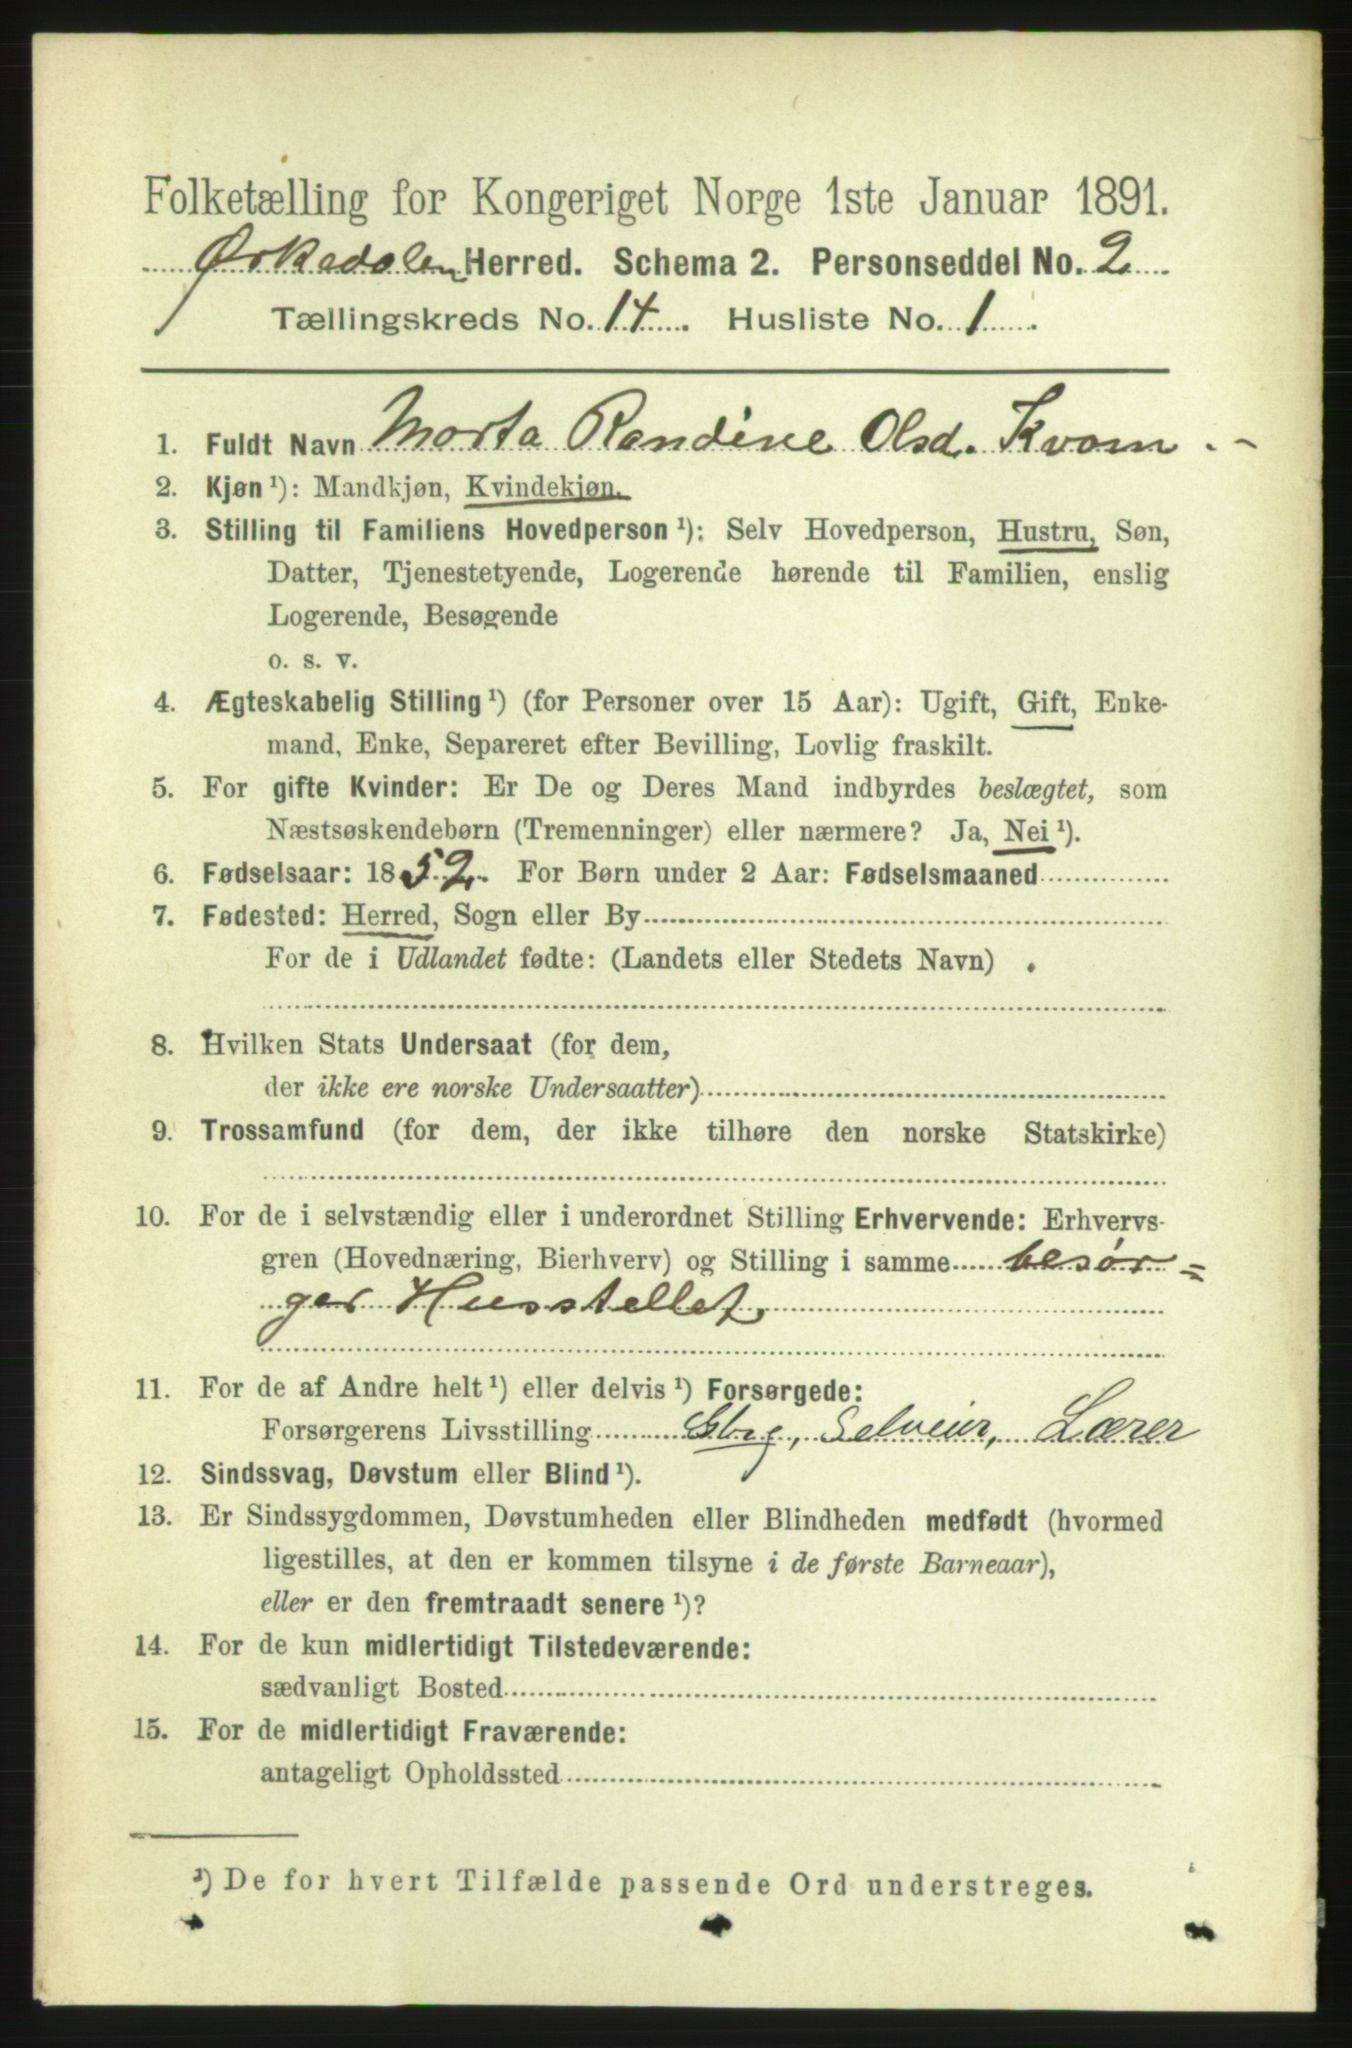 Folketælling for Kongeriget Norge 1ste Januar 1891.
Ørkedalen Herred. Schema 2. Personseddel No. 2
Tællingskreds No. 14. Husliste No. 1.
1. Fuldt Navn Marta Randine Olsd. Kvam.-
2. Kjøn ¹): Mandkjøn, Kvindekjøn.
3. Stilling til Familiens Hovedperson ¹): Selv Hovedperson, Hustru, Søn,
Datter, Tjenestetyende, Logerende hørende til Familien, enslig
Logerende, Besøgende
o. s. v.
4. Ægteskabelig Stilling ¹) (for Personer over 15 Aar): Ugift, Gift, Enke-
mand, Enke, Separeret efter Bevilling, Lovlig fraskilt.
5. For gifte Kvinder: Er De og Deres Mand indbyrdes beslægtet, som
Næstsøskendebørn (Tremenninger) eller nærmere? Ja, Nei ¹).
6. Fødselsaar: 1852. For Børn under 2 Aar: Fødselsmaaned
7. Fødested: Herred, Sogn eller By
For de i Udlandet fødte: (Landets eller Stedets Navn)
8. Hvilken Stats Undersaat (for dem,
der ikke ere norske Undersaatter)
9. Trossamfund (for dem, der ikke tilhøre den norske Statskirke)
10. For de i selvstændig eller i underordnet Stilling Erhvervende: Erhvervs-
gren (Hovednæring, Bierhverv) og Stilling i samme besør=
ger Husstellet,
11. For de af Andre helt ¹) eller delvis ¹) Forsørgede:
Forsørgerens Livsstilling Gbrg, Selveier, Lærer
12. Sindssvag, Døvstum eller Blind ¹).
13. Er Sindssygdommen, Døvstumheden eller Blindheden medfødt (hvormed
ligestilles, at den er kommen tilsyne i de første Barneaar),
eller er den fremtraadt senere ¹)?
14. For de kun midlertidigt Tilstedeværende:
sædvanligt Bosted
15. For de midlertidigt Fraværende:
antageligt Opholdssted
¹) De for hvert Tilfælde passende Ord understreges.